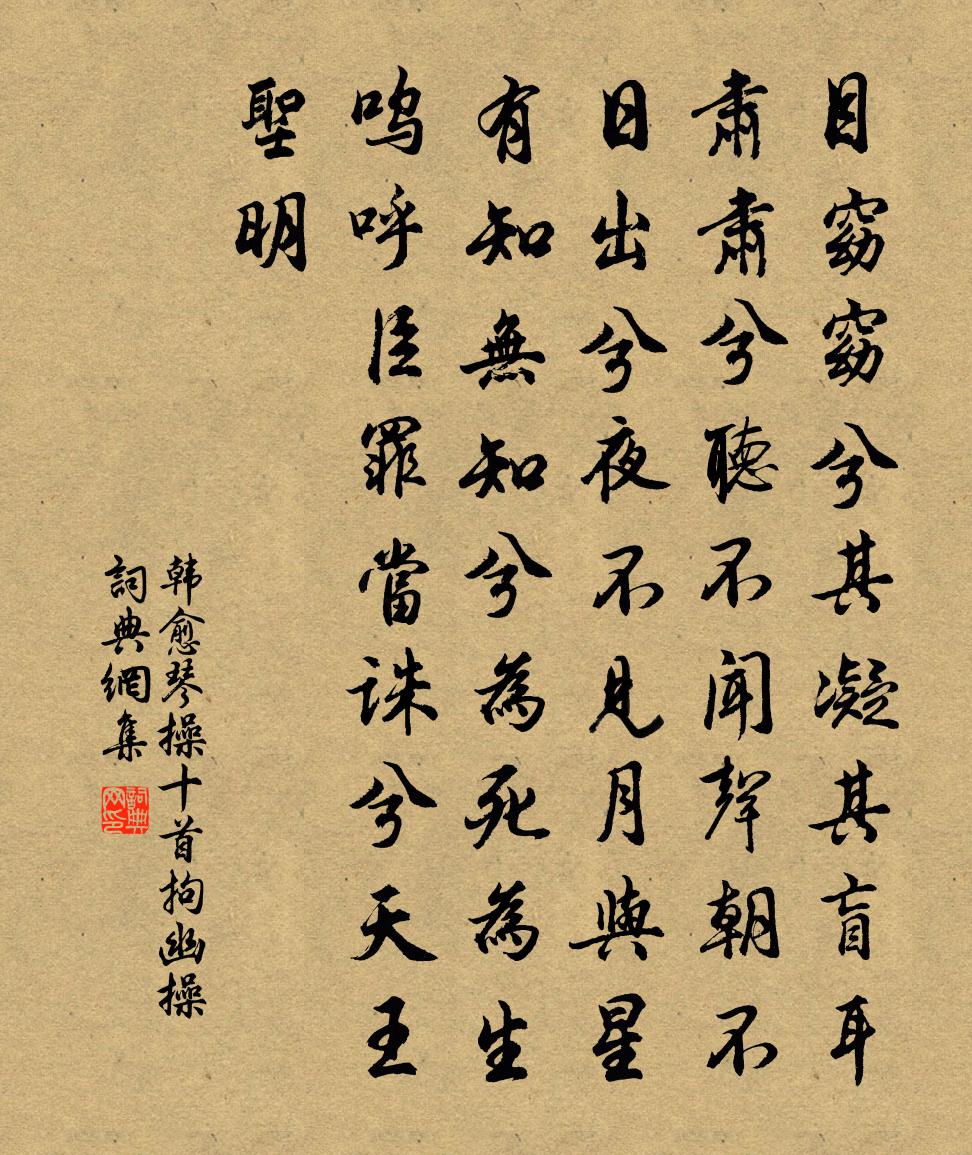 目窈窈兮其凝其盲耳
肅肅兮聽不聞聲朝不
日出兮夜不見月與星
有知無知兮為死為生
嗚呼臣罪當誅兮天王
聖明
韩愈琴操十首拘幽操
詞典網集
詞典网印